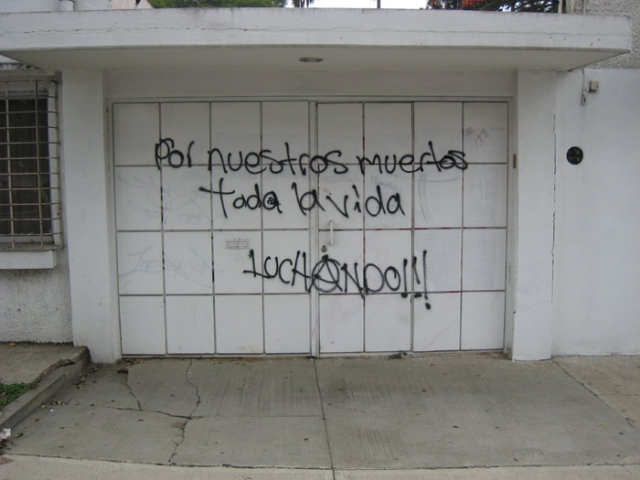 Por nuestros muertos
toda la vida
LUCHANDO!!!